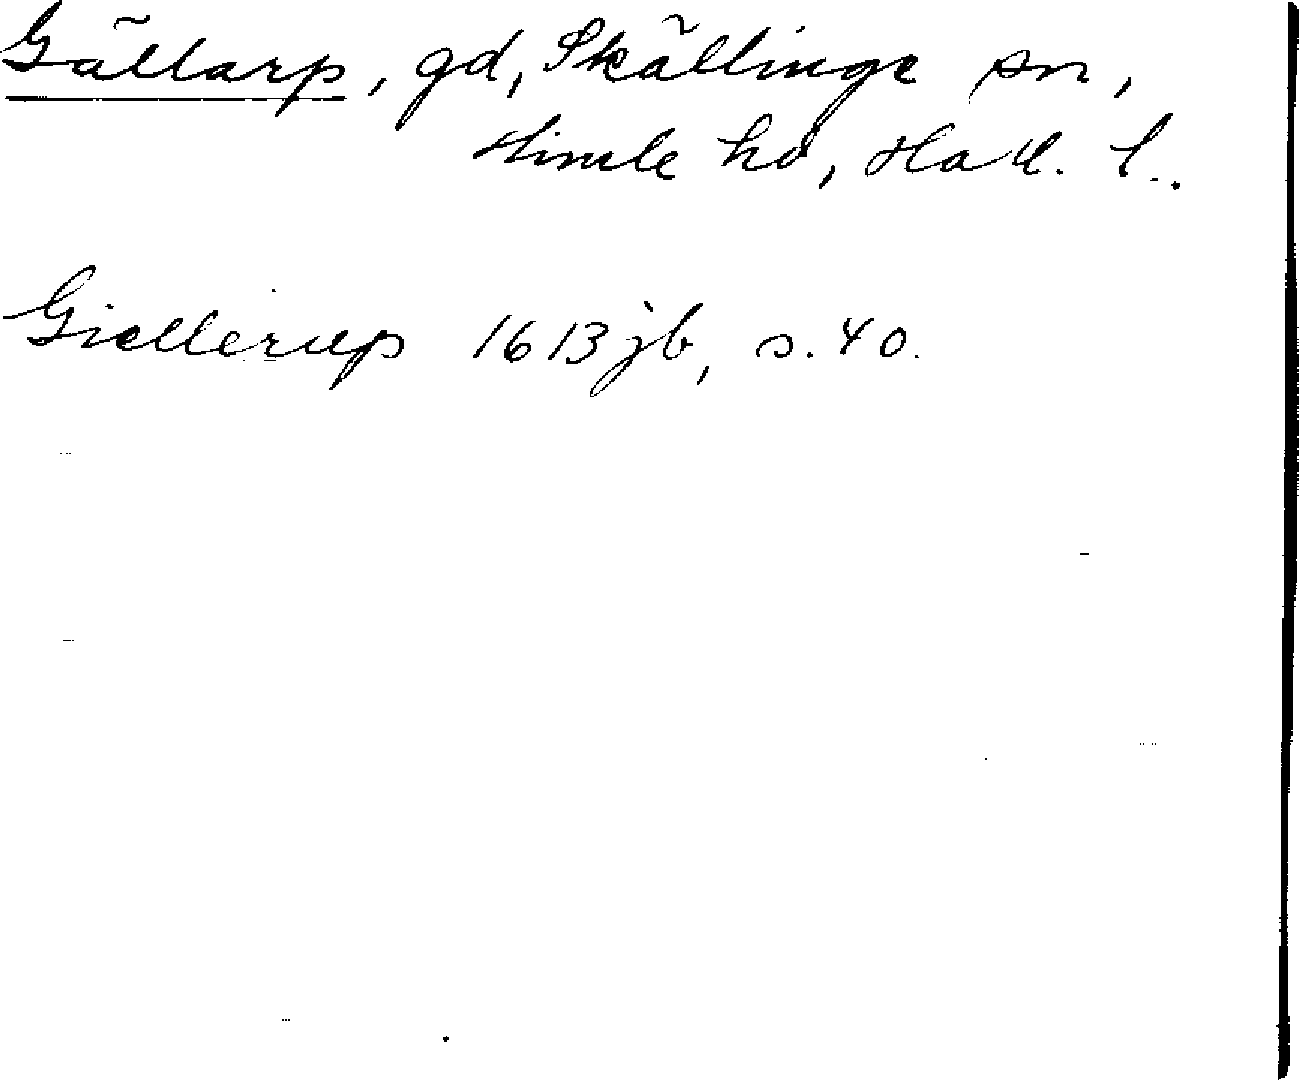 Gällarp, gd, Skällinge sn,
Himle hd, Hall. l.
Giellerup 1613 jb, s. 40.